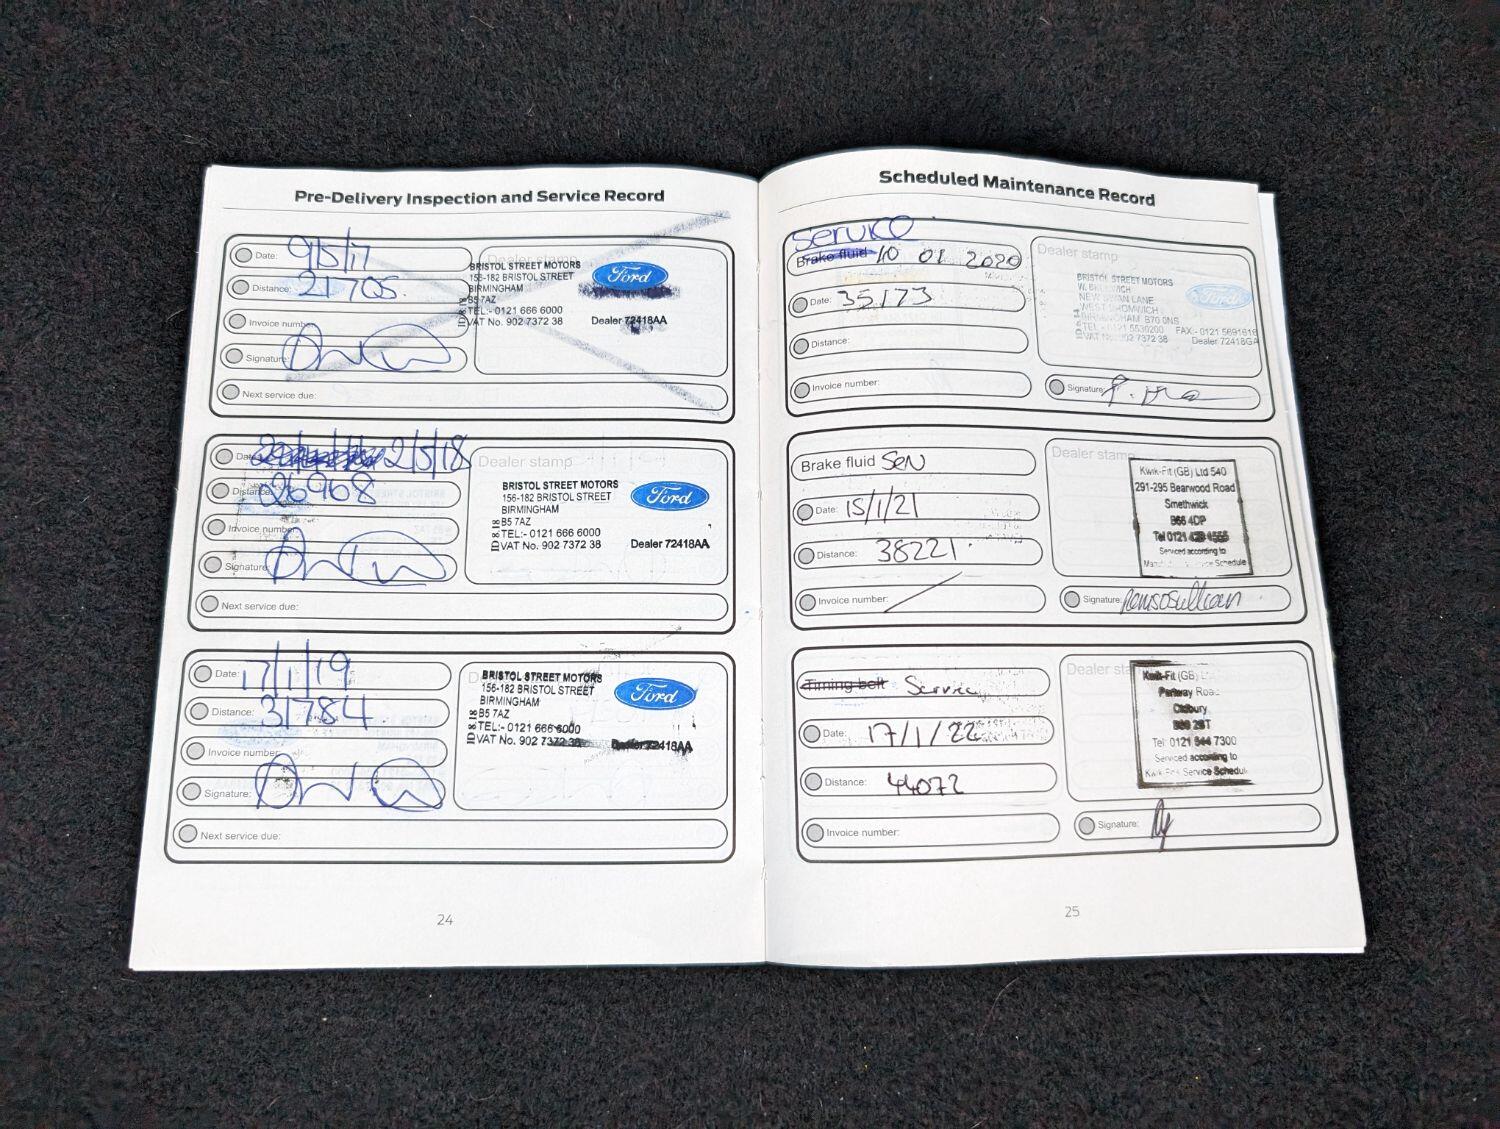 Pre-Delivery Inspection and Service Record
Date: 9/5/17
Distance: 21705
Invoice number:
Signature:
Next service due:
Dealer stamp
BRISTOL STREET MOTORS
156-182 BRISTOL STREET
BIRMINGHAM
B5 7AZ
TEL:- 0121 666 6000
VAT No. 902 7372 38
Ford
Dealer 72418AA
Date: 2/5/18
Distance: 26968
Invoice number:
Signature:
Next service due:
Dealer stamp
BRISTOL STREET MOTORS
156-182 BRISTOL STREET
BIRMINGHAM
B5 7AZ
TEL:- 0121 666 6000
VAT No. 902 7372 38
Ford
Dealer 72418AA
Date: 17/1/19
Distance: 31784
Invoice number:
Signature:
Next service due:
BRISTOL STREET MOTORS
156-182 BRISTOL STREET
BIRMINGHAM
B5 7AZ
TEL:- 0121 666 6000
VAT No. 902 7372 38
Ford
Dealer 72418AA
24
Scheduled Maintenance Record
Service
Brake fluid 10 01 2020
Date: 35173
Distance:
Invoice number:
Dealer stamp
BRISTOL STREET MOTORS
W. BROMWICH
NEW SWAN LANE
WEST BROMWICH
BIRMINGHAM B70 0NS
TEL:- 0121 5530200 FAX:- 0121 5691616
VAT No. 902 7372 38
Dealer 72418GA
Ford
Signature:
Brake fluid
Date: 15/1/21
Distance: 38221
Invoice number:
Dealer stamp
Kwik-Fit (GB) Ltd 540
291-295 Bearwood Road
Smethwick
B66 4DP
Tel 0121
Serviced according to
Service Schedule
Signature:
Timing belt Service
Date: 17/1/22
Distance: 44072
Invoice number:
Dealer stamp
Kwik-Fit (GB)
Parkway Road
Oldbury
Tel: 0121 544 7300
Serviced according to
Kwik-Fit's Service Schedule
Signature:
25